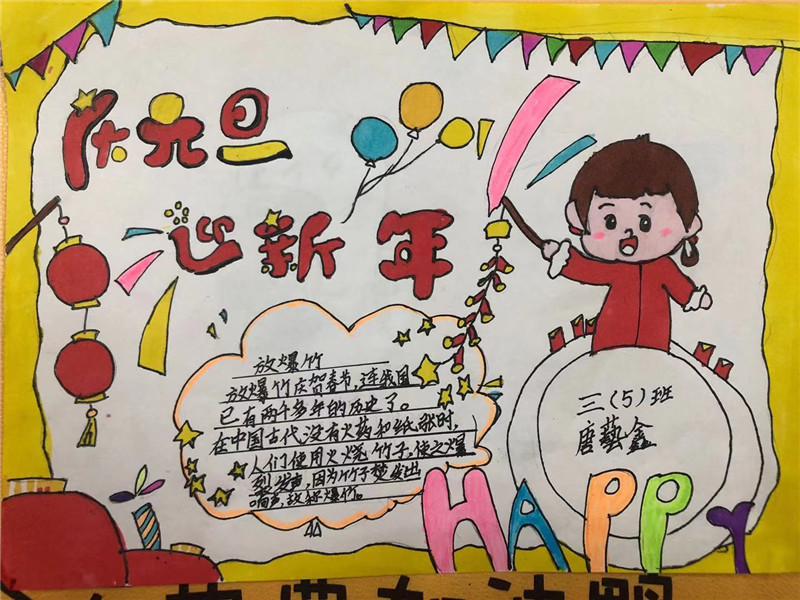 庆元旦
迎新年
放爆竹
放爆竹庆贺春节,连我国
已有两千多年的历史了。
在中国古代,没有火药和纸张时,
人们使用火烧竹子,使之爆
裂发声,因为竹子焚发出
响声,故称爆竹。
三(5)班
唐藝鑫
HAPPY